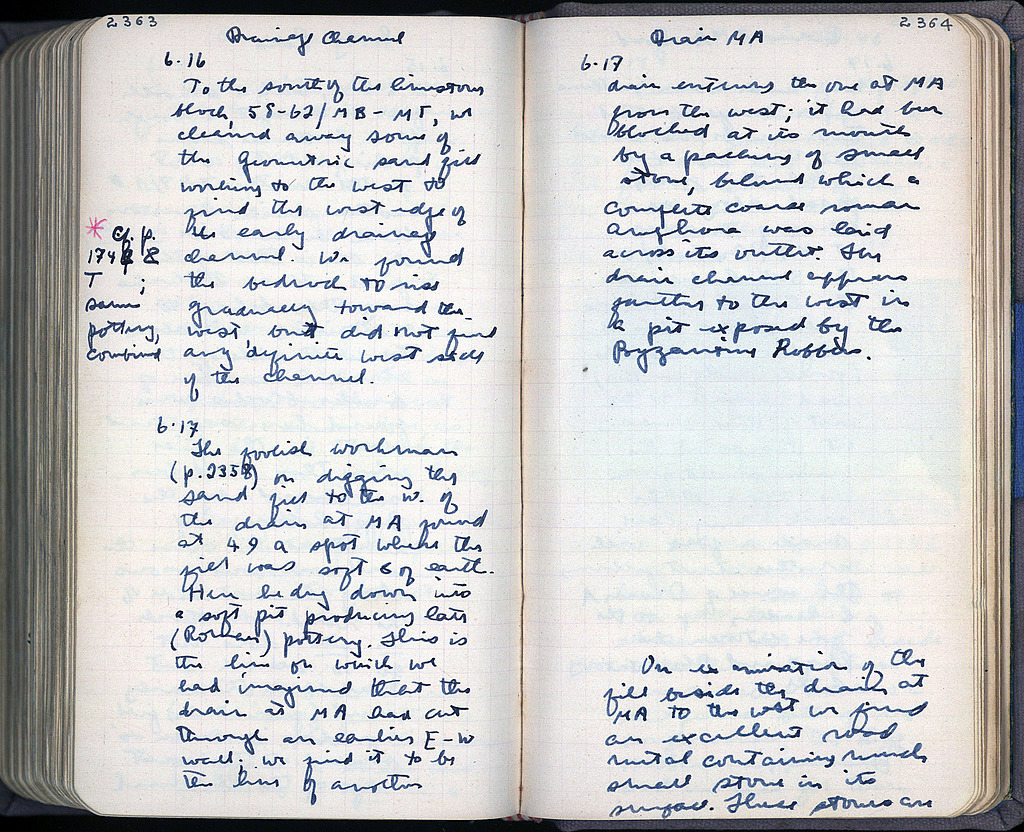 2363
Drainage Channel
6·16
To the south of the limestone
block, 58-62/MB-MT, we
cleaned away some of
the Geometric sand fill
working to the west to
find the west edge of
* cf. p.
174 & 8
T ;
same
pottery,
combined
the early drainage
channel. We found
the bedrock to rise
gradually toward the
west, but did not find
any definite west side
of the channel.
6·17
The foolish workman
(p. 2358) on digging the
sand fill to the w. of
the drain at MA found
at 49 a spot where the
fill was soft & of earth.
Here he dug down into
a soft pit producing late
(Roman) pottery. This is
the line on which we
had imagined that the
drain at MA had cut
through an earlier E-W
wall; we find it to be
the line of another
2364
Drain MA
6·17
drain entering the one at MA
from the west; it had been
blocked at its mouth
by a packing of small
stone, behind which a
complete coarse roman
amphora was laid
across its outlet. The
drain channel appears
farther to the west in
a pit exposed by the
Byzantine Robbers.
On examination of the
fill beside the drain at
MA to the west we find
an excellent road
metal containing much
small stone in its
surface. These stones are